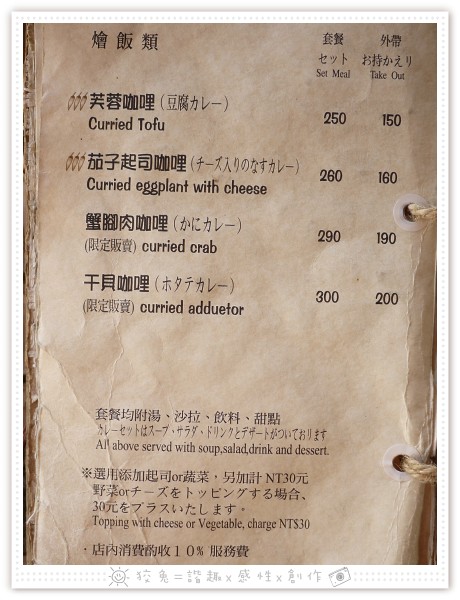 燴飯類
套餐 外帶
セット お持かえり
Set Meal Take Out
芙蓉咖哩(豆腐カレー)
Curried Tofu 250 150
茄子起司咖哩(チーズ入りのなすカレー)
Curried eggplant with cheese 260 160
蟹腳肉咖哩(かにカレー)
(限定販賣) curried crab 290 190
干貝咖哩(ホタテカレー)
(限定販賣) curried adduetor 300 200
套餐均附湯、沙拉、飲料、甜點
カレーセットはスープ、サラダ、ドリンクとデザートがついております
All above served with soup,salad,drink and dessert.
※選用添加起司or蔬菜，另加計 NT30元
野菜orチーズをトッピングする場合、
30元をプラスいたします。
Topping with cheese or Vegetable, charge NT$30
．店內消費酌收１０％ 服務費
狡兔=諧趣x感性x創作